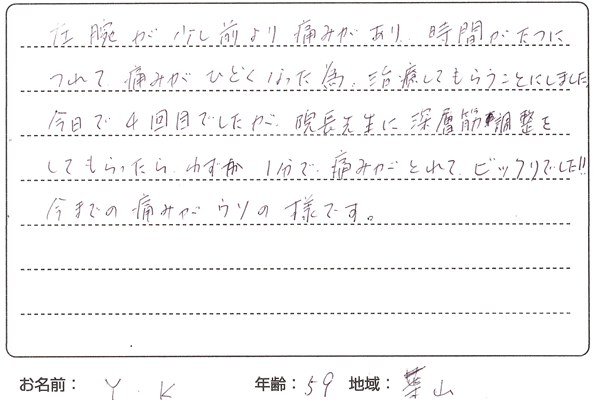 左腕が少し前より痛みがあり、時間がたつに
つれて痛みがひどくなった為、治療してもらうことにしました。
今日で4回目でしたが、院長先生に深層筋調整を
してもらったら、わずか1分で、痛みがとれて、ビックリでした!!
今までの痛みがウソの様です。
お名前: Y.K 年齢:59 地域:葉山